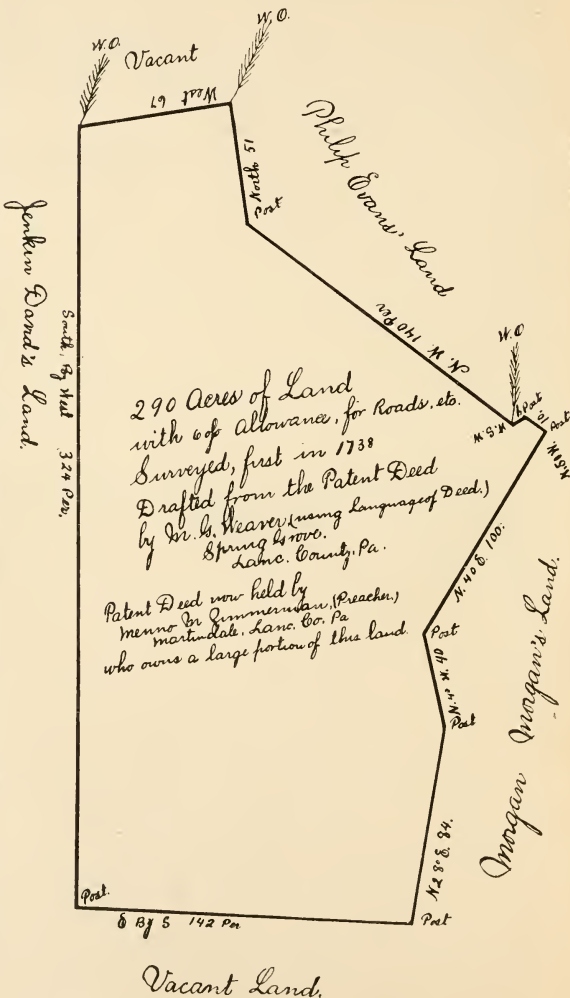 W.O.
W.O.
Vacant
West 67
Philip Evans' Land
North 51
Post
N. W. 140 Per
W.O
Post
Post
10.
N.5.W
N.50.W.
Jenkin David's Land.
South, By West 324 Per,
290 Acres of Land
with 6 of Allowance, for Roads, etc.
Surveyed, first in 1738
Drafted from the Patent Deed
by M. G. Weaver (using Language of Deed.)
Spring Grove.
Lanc. County, Pa.
Patent Deed now held by
Menno M Zimmerman, (Preacher.)
Martindale, Lanc. Co. Pa
who owns a large portion of this land.
N. 40 E. 100.
Post
N. 4° W. 40
Post
Morgan Morgan's Land.
N 28° E. 84.
Post.
E By S 142 Per
Post
Vacant Land.